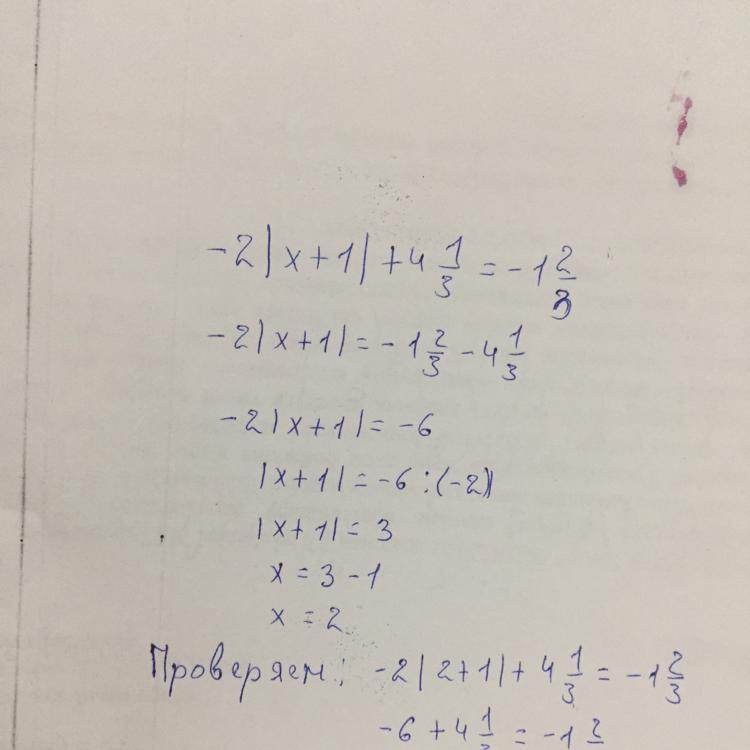 -2|x+1|+4 1/3 = -1 2/3
-2|x+1| = -1 2/3 - 4 1/3
-2|x+1| = -6
|x+1| = -6 : (-2)
|x+1| = 3
x = 3 - 1
x = 2
Проверяем: -2|2+1|+4 1/3 = -1 2/3
-6 + 4 1/3 = -1 2/